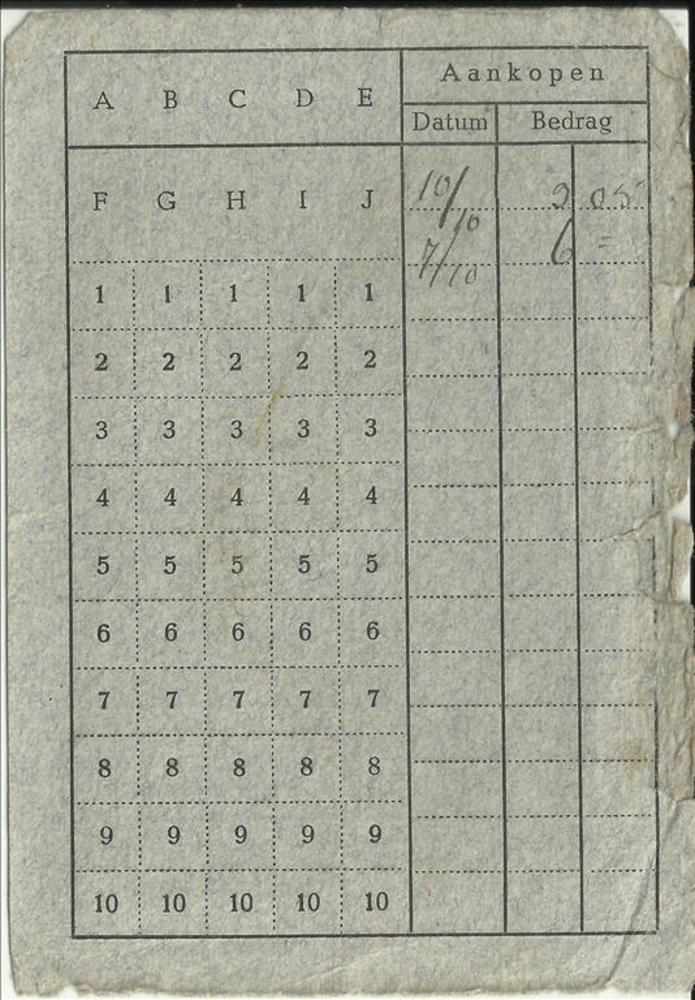 A B C D E Aankopen
Datum Bedrag
F G H I J 10/10 2 05
7/10 6 =
1 1 1 1 1
2 2 2 2 2
3 3 3 3 3
4 4 4 4 4
5 5 5 5 5
6 6 6 6 6
7 7 7 7 7
8 8 8 8 8
9 9 9 9 9
10 10 10 10 10